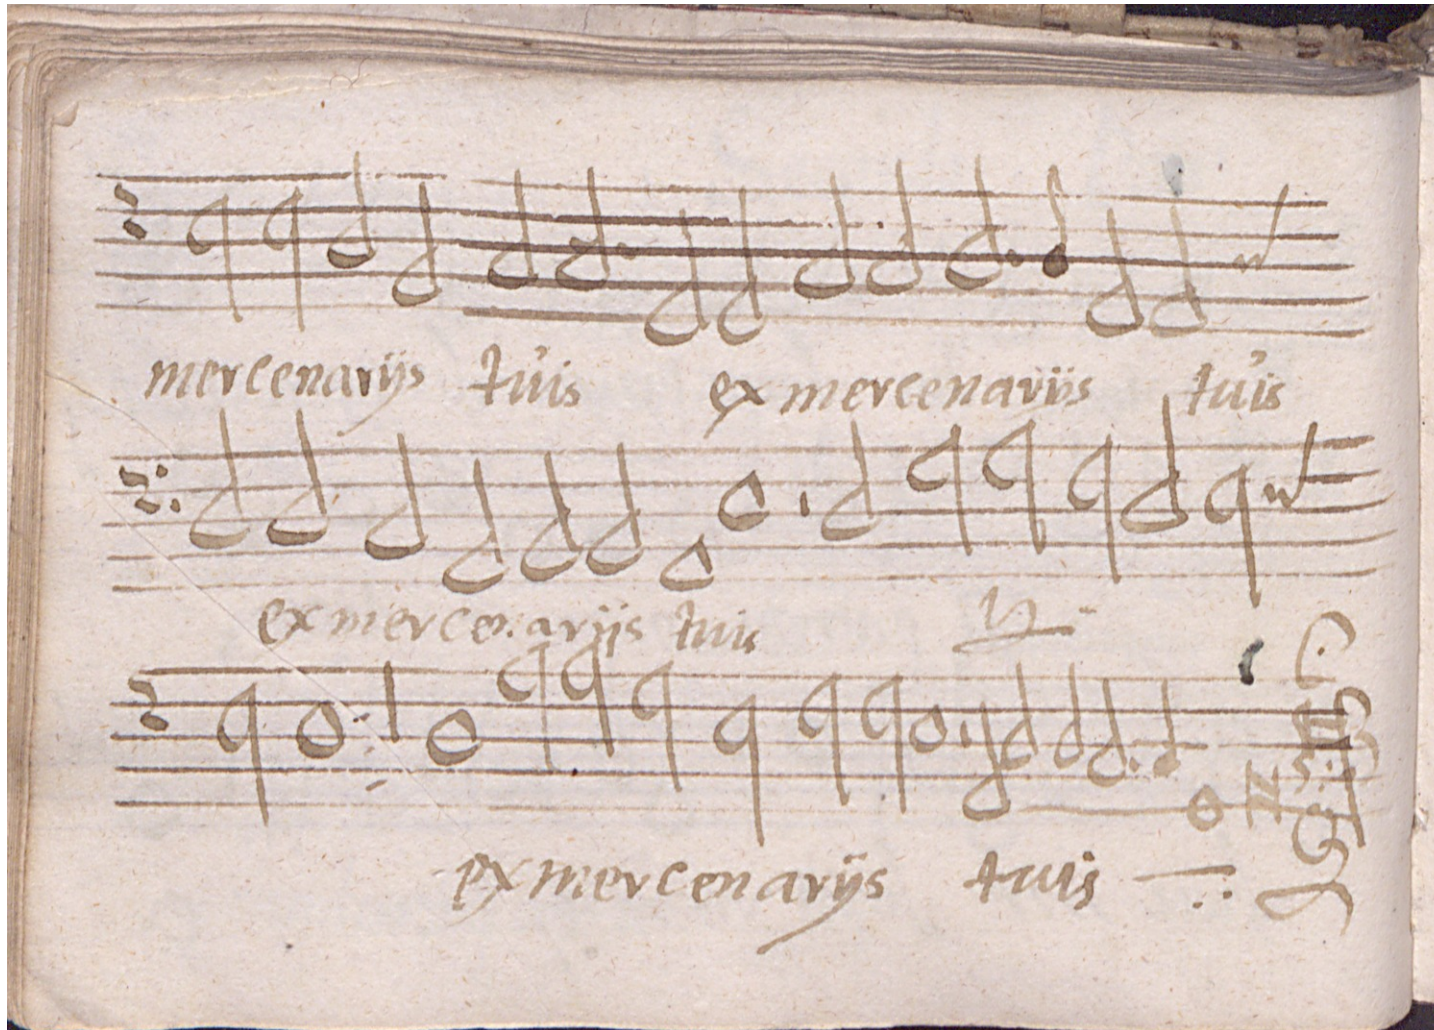 mercenarijs tuis ex mercenarijs tuis
ex mercenarijs tuis ij
ex mercenarijs tuis